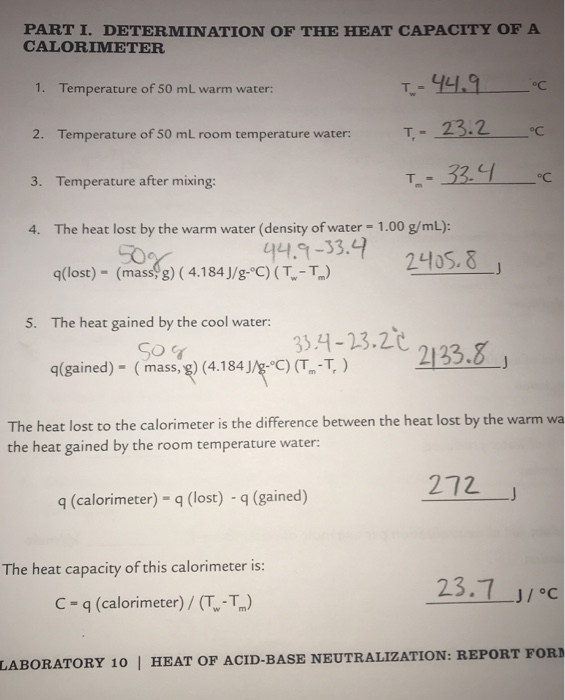 PART I. DETERMINATION OF THE HEAT CAPACITY OF A
CALORIMETER
1. Temperature of 50 mL warm water: T_w = 44.9 °C
2. Temperature of 50 mL room temperature water: T_r = 23.2 °C
3. Temperature after mixing: T_m = 33.4 °C
4. The heat lost by the warm water (density of water = 1.00 g/mL):
50g 44.9-33.4
q(lost) = (mass, g) ( 4.184 J/g-°C) ( T_w - T_m) 2405.8 J
5. The heat gained by the cool water:
50g 33.4-23.2°C
q(gained) = ( mass, g) (4.184 J/g-°C) (T_m - T_r ) 2133.8 J
The heat lost to the calorimeter is the difference between the heat lost by the warm wa
the heat gained by the room temperature water:
q (calorimeter) = q (lost) - q (gained) 272 J
The heat capacity of this calorimeter is:
C = q (calorimeter) / (T_w - T_m) 23.7 J/°C
LABORATORY 10 | HEAT OF ACID-BASE NEUTRALIZATION: REPORT FORM